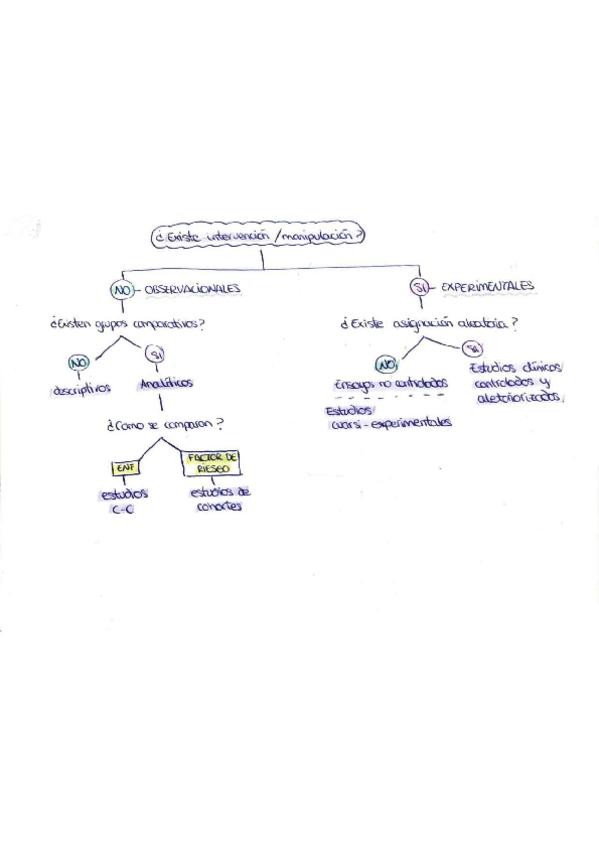 ¿Existe intervención/manipulación?
NO - OBSERVACIONALES
SI - EXPERIMENTALES
¿Existen grupos comparativos?
¿Existe asignación aleatoria?
NO
SI
NO
SI
descriptivos
Analíticos
Ensayos no controlados
Estudios clínicos/
controlados y
aletoriorizados,
Estudios/
cuasi-experimentales
¿Como se comparan?
ENF
FACTOR DE
RIESGO
estudios
C-C
estudios de
cohortes